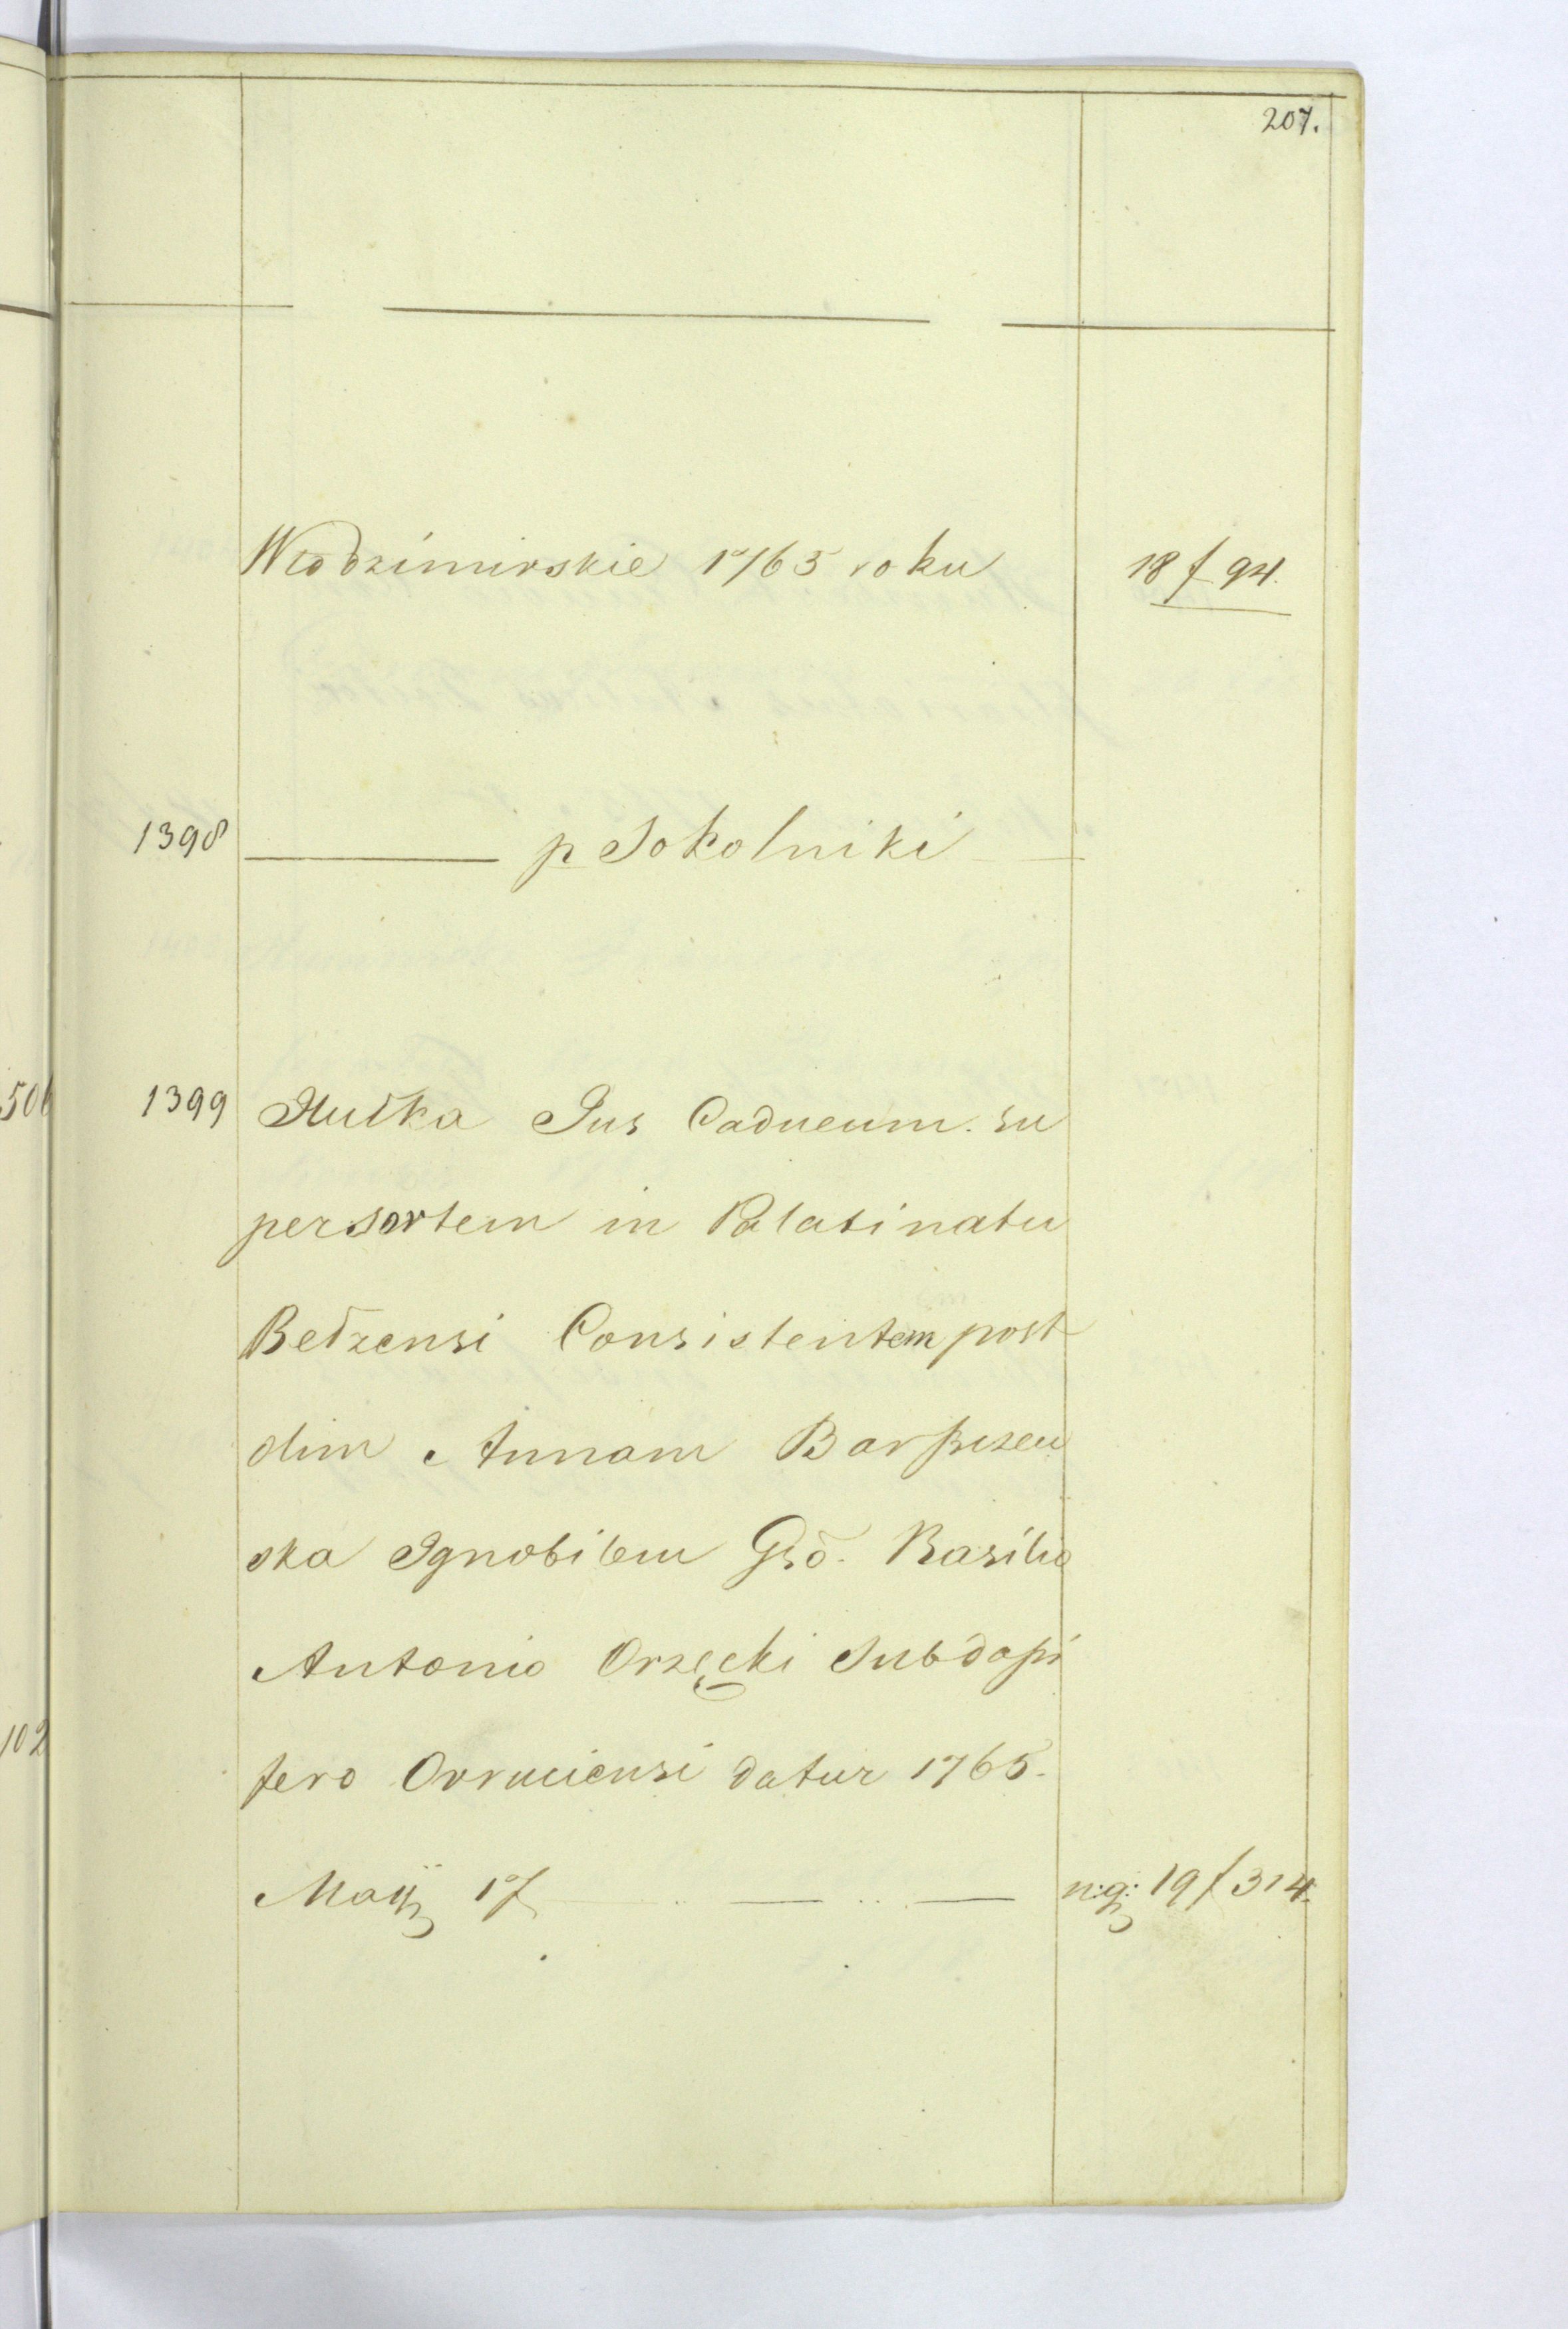 207.
Włodzimirskie 1765 roku 18 f 94.
1398 p Sokolniki
1399 Hułka Jus Caducum. su
per sortem in Palatinatu
Bełzensi Consistentem post
olim Annam
ska Ignobilem Gsō. Basilio
Antonio Orzęcki Subdapi
fero Ovruciensi datur 1765.
Maij 17 n:g: 19 f 314.
506
102